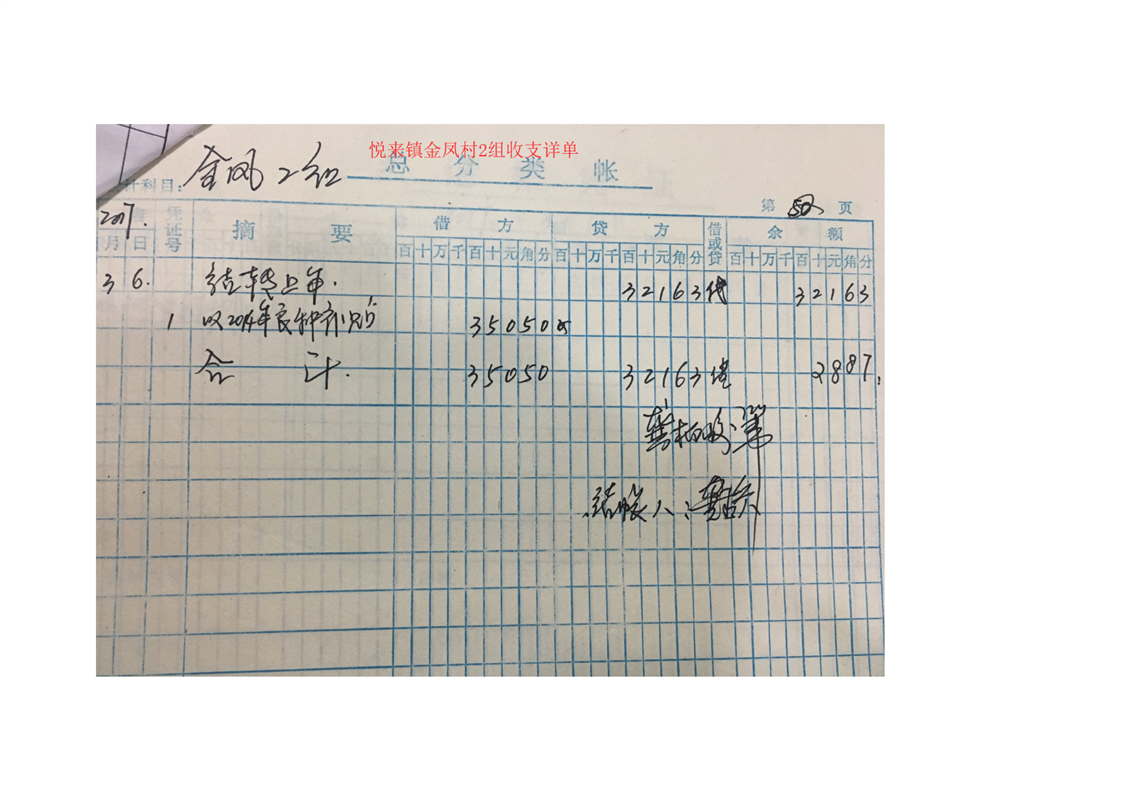 悦来镇金凤村2组收支详单
总分类帐
计科目：金凤2组
第 50 页
2017.
月 日 凭证号 摘要 借方 贷方 借或贷 余额
百十万千百十元角分 百十万千百十元角分 百十万千百十元角分
3 6. 结转上年. 32163 贷 32163
1 收2014年良种补贴 35050
合计. 35050 32163 借 2887
结账人: